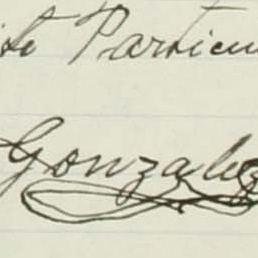 ite Particu
Gonzalez